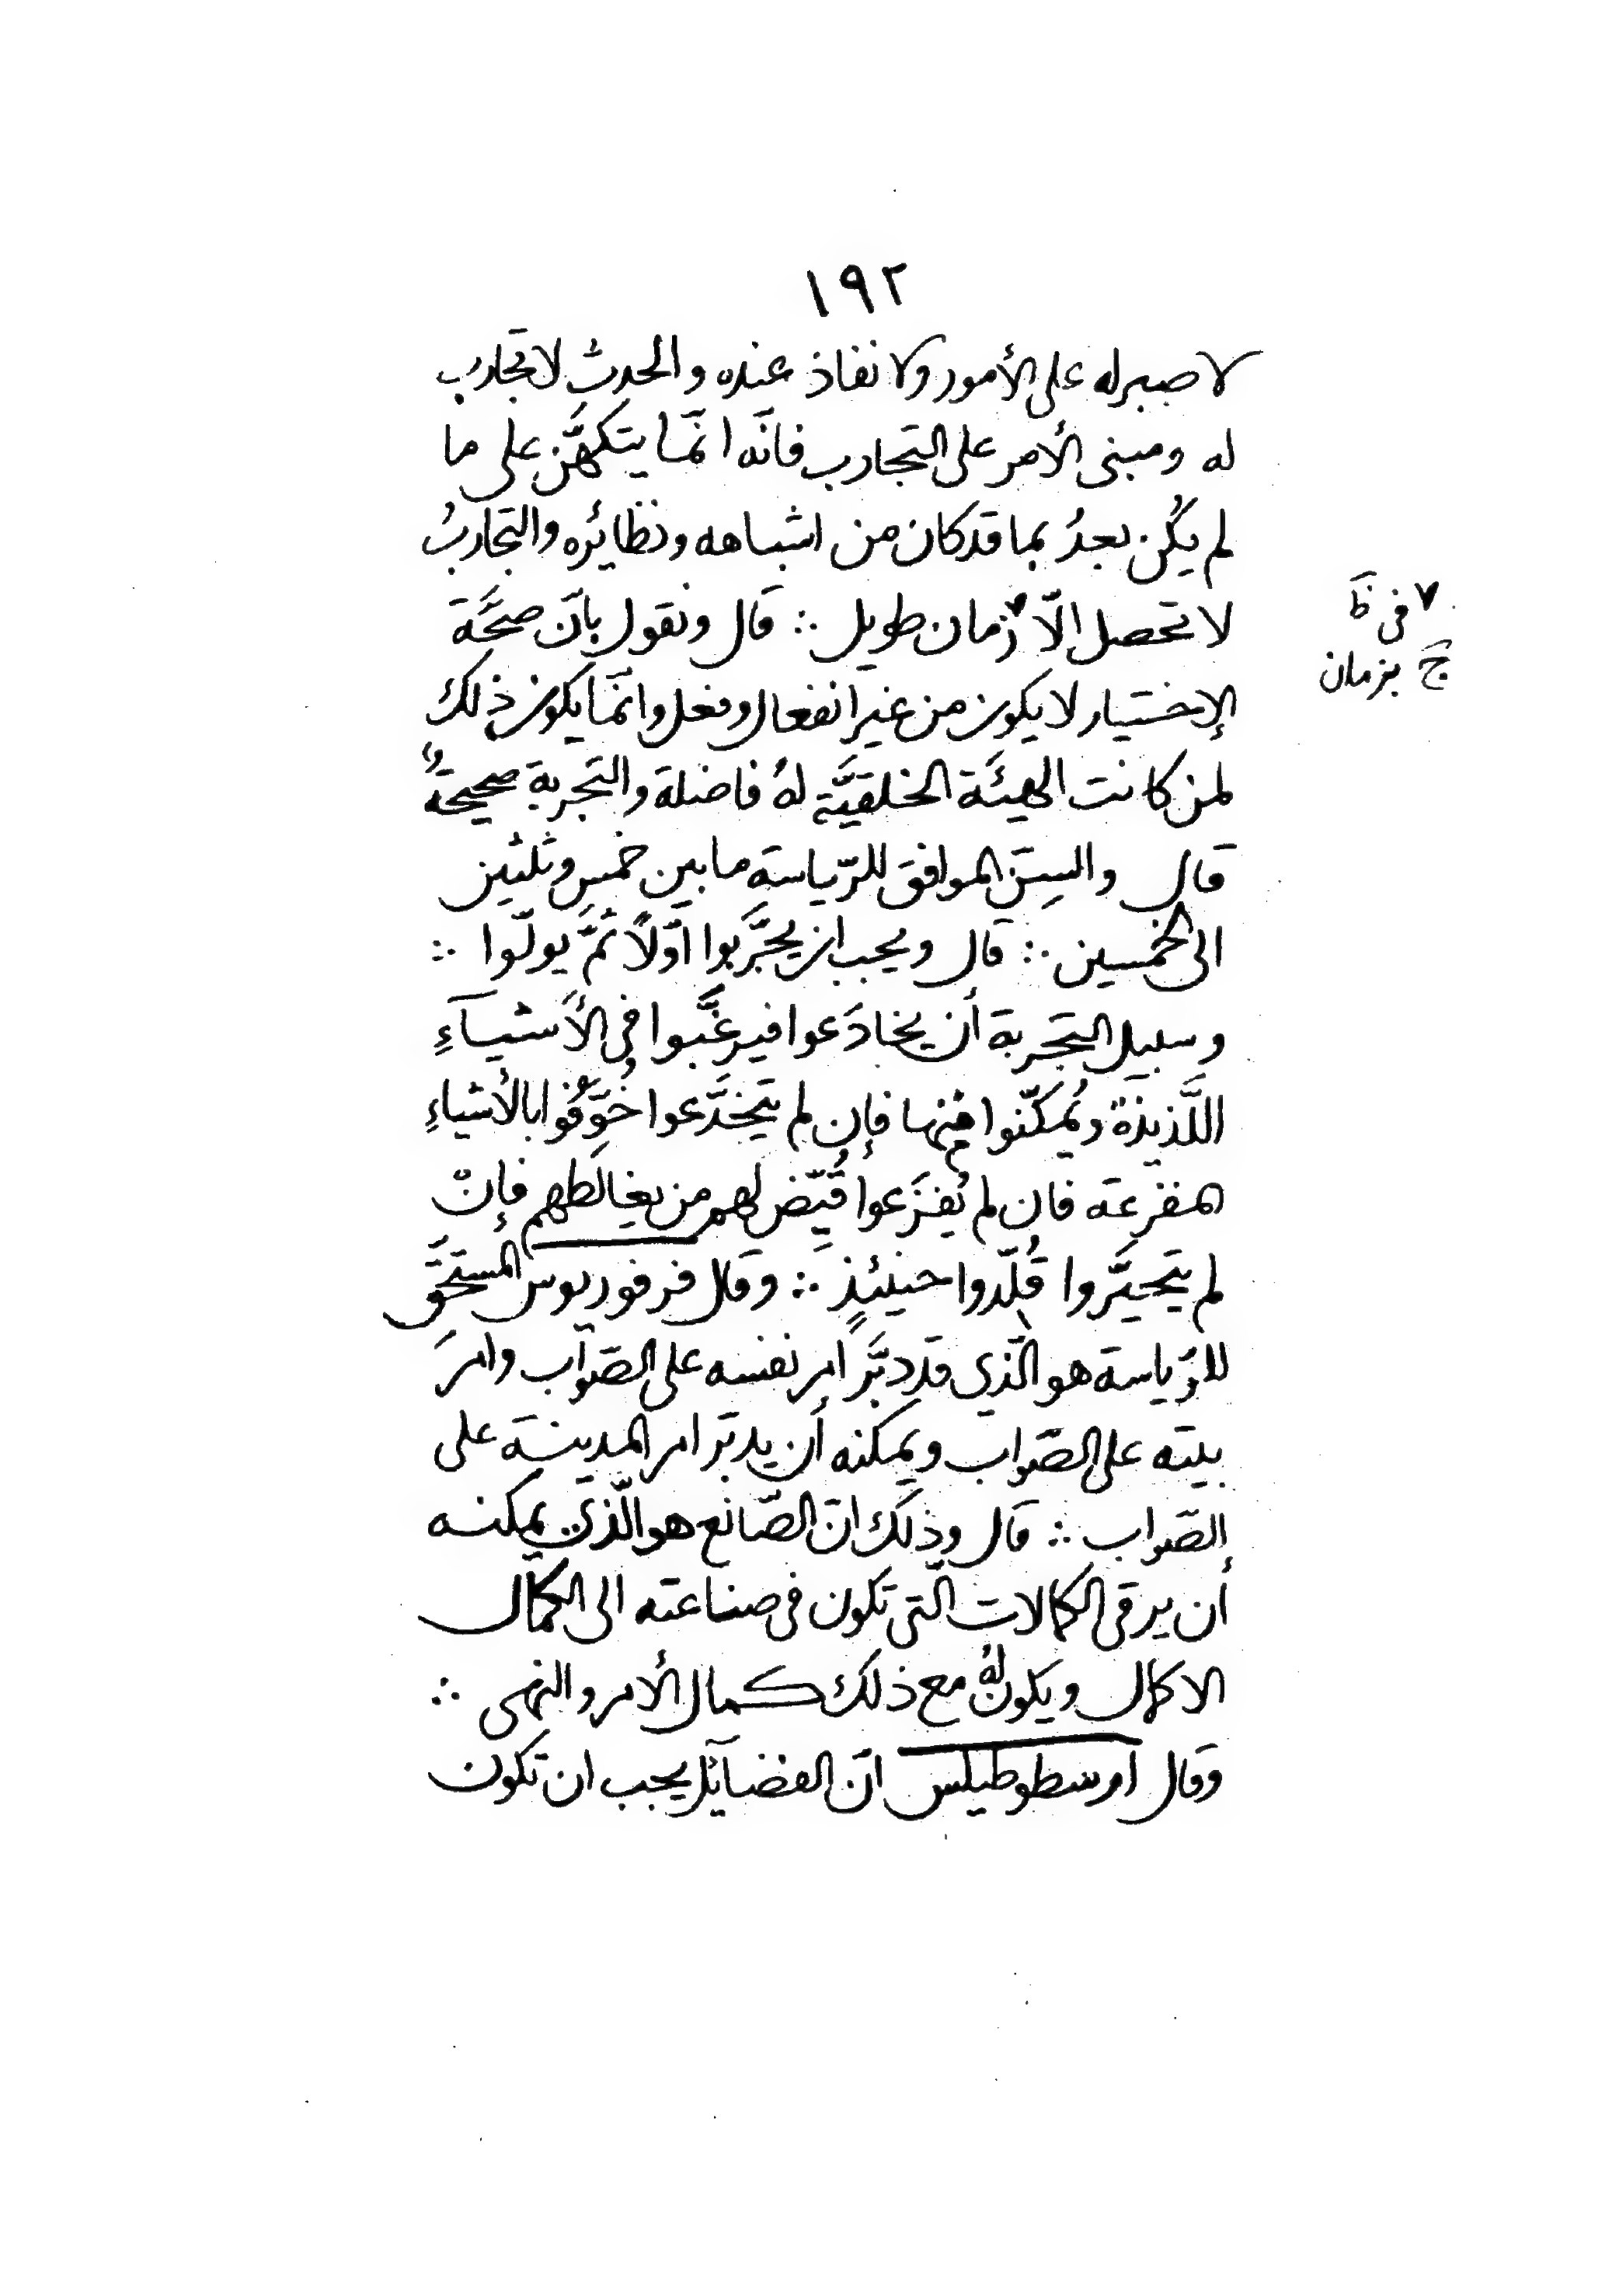 ١٩٢
لا صبر له على الأمور ولا نفاذ عنده والحدث لا تجارب
له ومبنى الأمر على التجارب فانّه انّما يتكهّن على ما
لم يكن بعدُ بما قد كان من اشباهه ونظائره والتجاربُ
لا تحصل الّا ٧ زمان طويل ∴ قال ونقول بأنّ صحَّة
٧ في ظ
خ بزمان
الإختيار لا يكون من غير انفعال وفعل وانّما يكون ذلك
لمن كانت الهيئَة الخلقيَّة لهُ فاضلة والتجربة صحيحةٌ
قال والسِنّ الموافق للرّياسة ما بين خمس وثلثين
الى الخمسين ∴ قال ويجب ان يجرَّبوا اوّلاً ثمَّ يولّوا ∴
وسبيل التجربة أن يخادَعوا فيرغَّبوا في الأَشيآءِ
اللَّذيذة ويُمكّنوا منها فإن لم يتخدَّعوا خُوِّفُوا بالأشياءِ
المفزعة فان لم يُفزَعوا قُيِّض لهم من يغالطهم فإنْ
لم يتحيَّروا قُلّدوا حينئذٍ ∴ وقال فرفوريوس المستحَقّ
للرّياسة هو الّذي قد دبَّر امر نفسه على الصّواب وامرَ
بيته على الصّواب ويمكنه أن يدبّر امر المدينة على
الصّواب ∴ قال وذلك انّ الصّانع هو الّذي يمكنه
أن يرقى الكمالات الّتي تكون في صناعته الى الكمال
الاكمل ويكون لهُ مع ذلك كمال الأمر والنهى ∴
وقال ارسطوطيلس انّ الفضايٓل يجب ان تكون